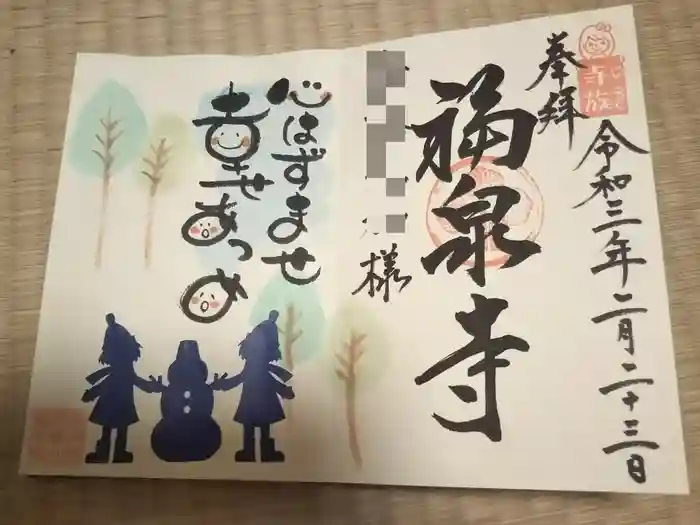 奉拝
令和三年二月二十三日
福泉寺
様
心はずませ
幸せあつめ